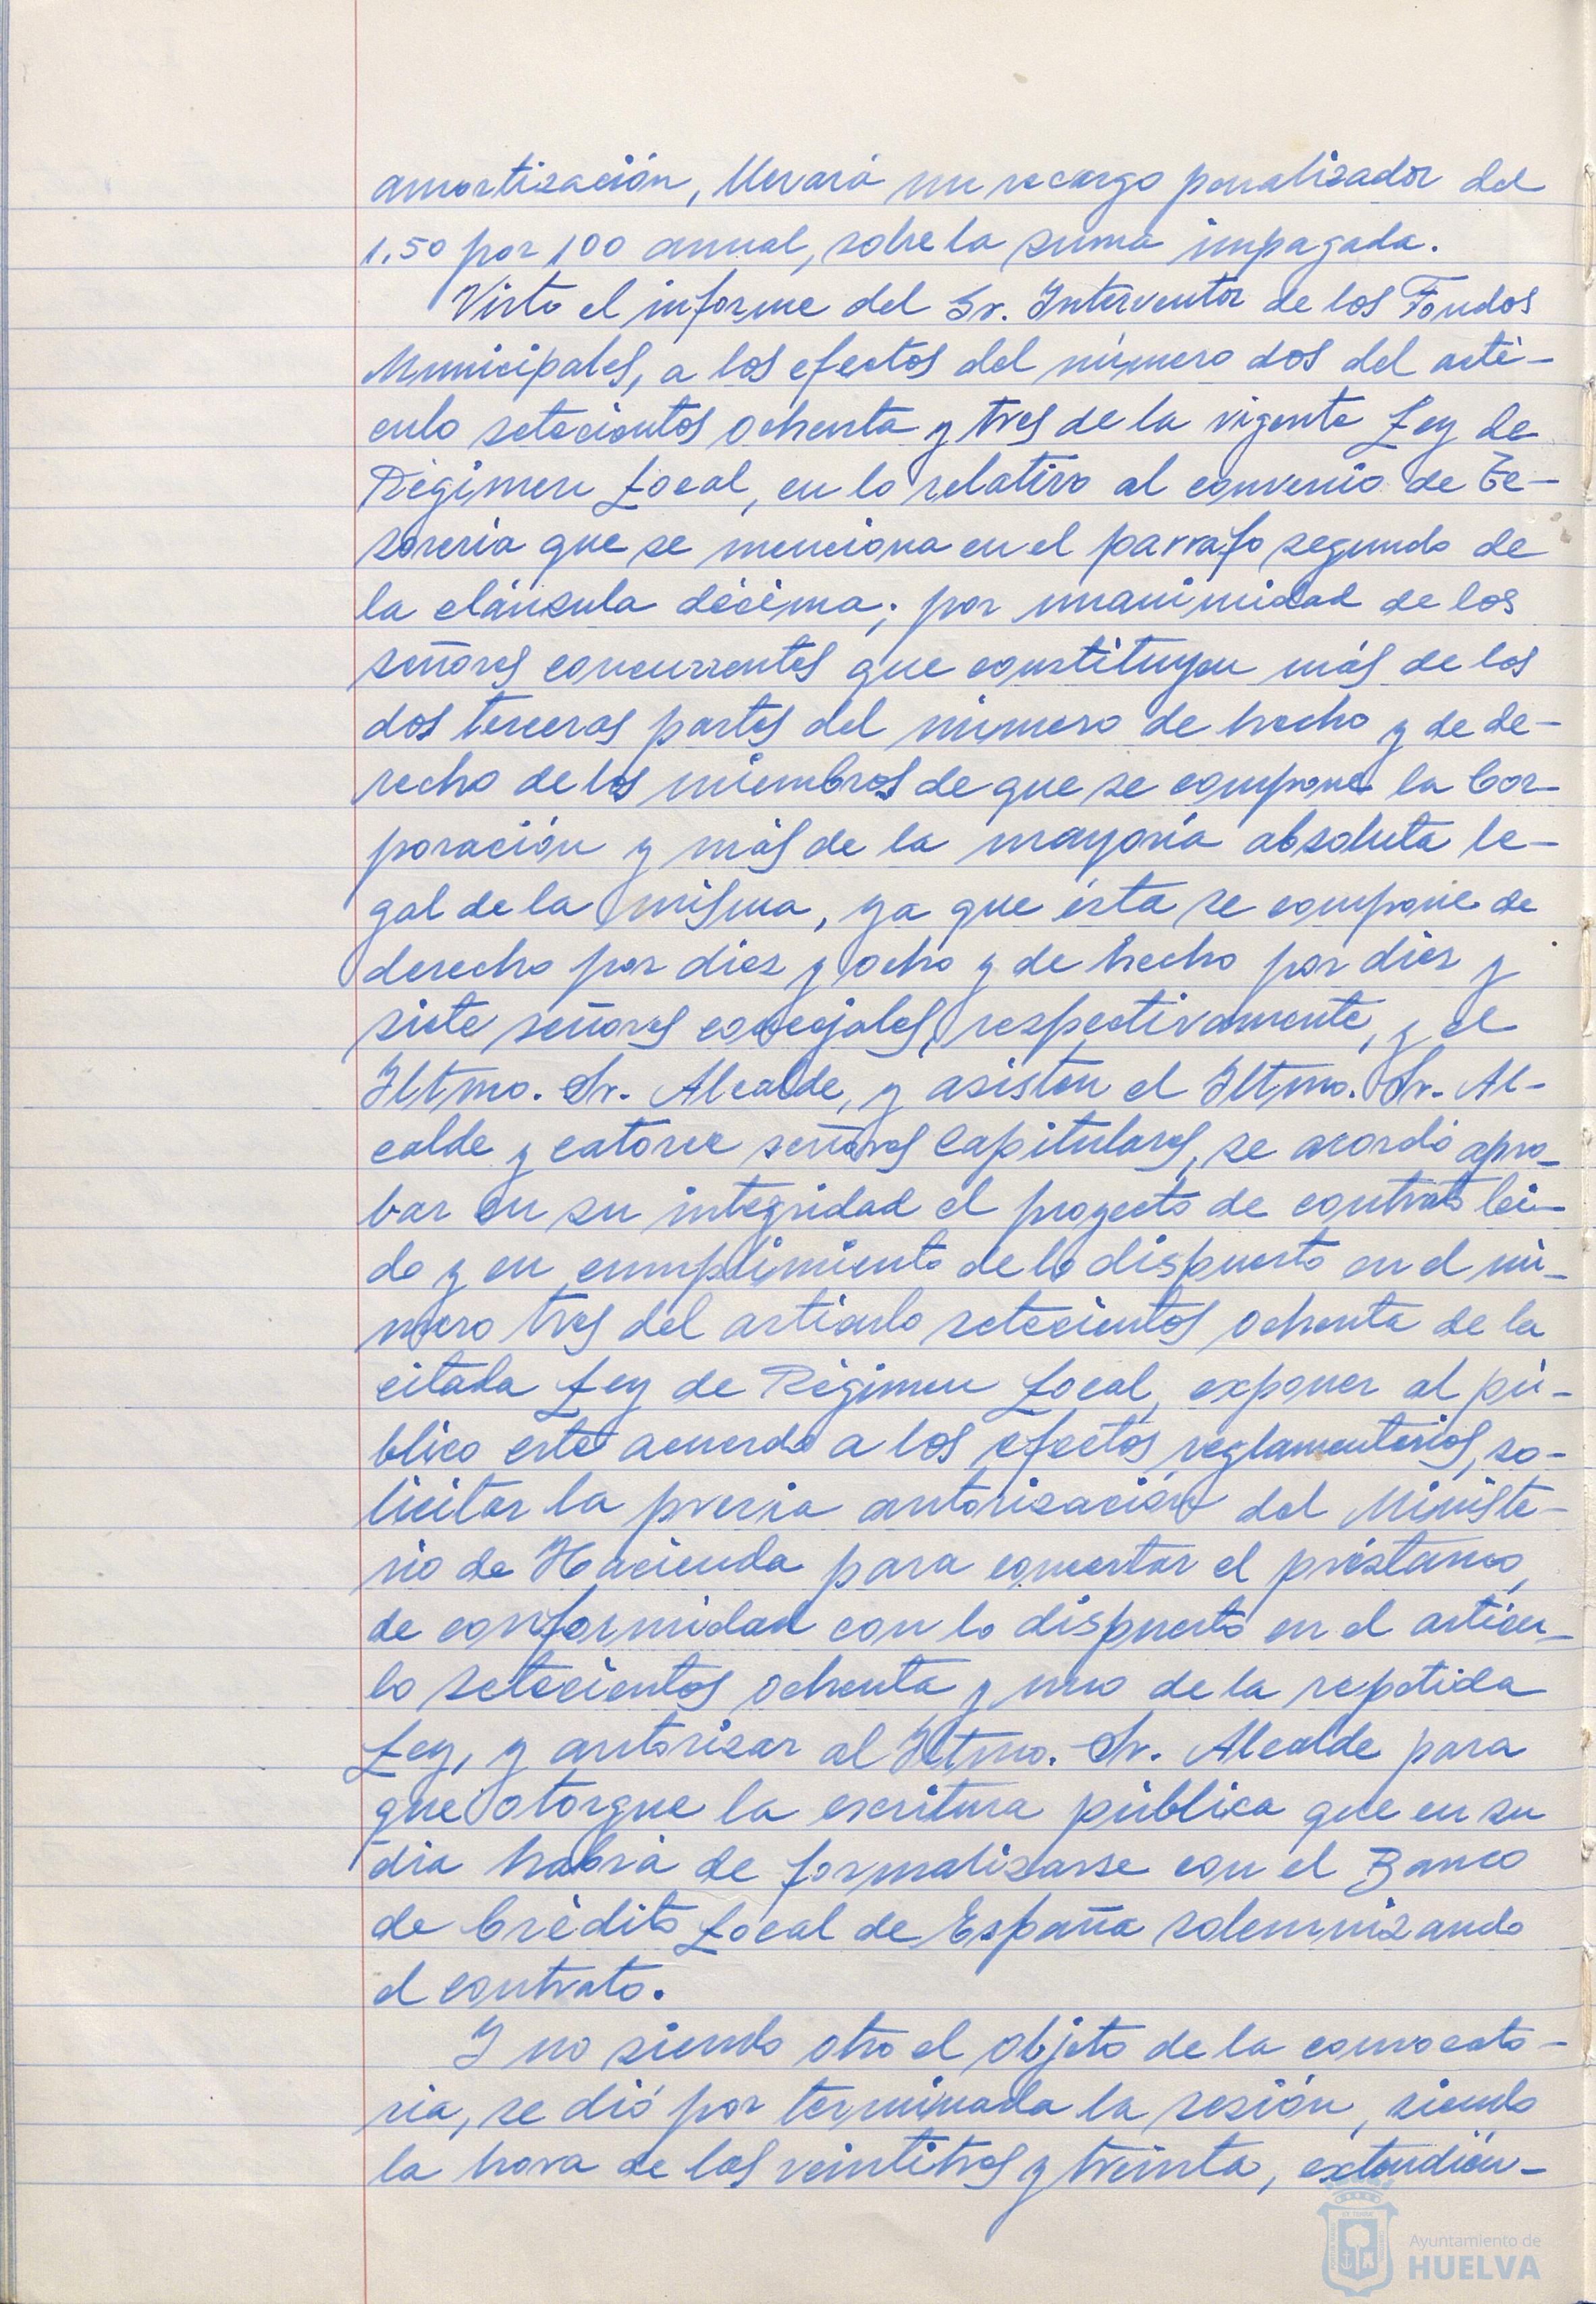 amortización, llevará un recargo penalizador del
1,50 por 100 anual, sobre la suma impagada.
Visto el informe del Sr. Interventor de los Fondos
Municipales, a los efectos del número dos del artí-
culo setecientos ochenta y tres de la vigente Ley de
Régimen Local, en lo relativo al convenio de Te-
sorería que se menciona en el párrafo segundo de
la cláusula décima; por unanimidad de los
señores concurrentes que constituyen más de los
dos terceras partes del número de hecho y de de-
recho de los miembros de que se compone la Cor-
poración y más de la mayoría absoluta le-
gal de la misma, ya que ésta se compone de
derecho por diez y ocho y de hecho por diez y
siete señores concejales, respectivamente, y el
Iltmo. Sr. Alcalde, y asisten el Iltmo. Sr. Al-
calde y catorce señores Capitulares, se acordó apro-
bar en su integridad el proyecto de contrato leí-
do y en cumplimiento de lo dispuesto en el nú-
mero tres del artículo setecientos ochenta de la
citada Ley de Régimen Local, exponer al pú-
blico este acuerdo a los efectos reglamentarios, so-
licitar la previa autorización del Ministe-
rio de Hacienda para concertar el préstamo,
de conformidad con lo dispuesto en el artícu-
lo setecientos ochenta y uno de la repetida
Ley, y autorizar al Iltmo. Sr. Alcalde para
que otorgue la escritura pública que en su
día habrá de formalizarse con el Banco
de Crédito Local de España solemnizando
el contrato.
Y no siendo otro el objeto de la convocato-
ria, se dió por terminada la sesión, siendo
la hora de las veintitres y treinta, extendién-
Ayuntamiento de
HUELVA